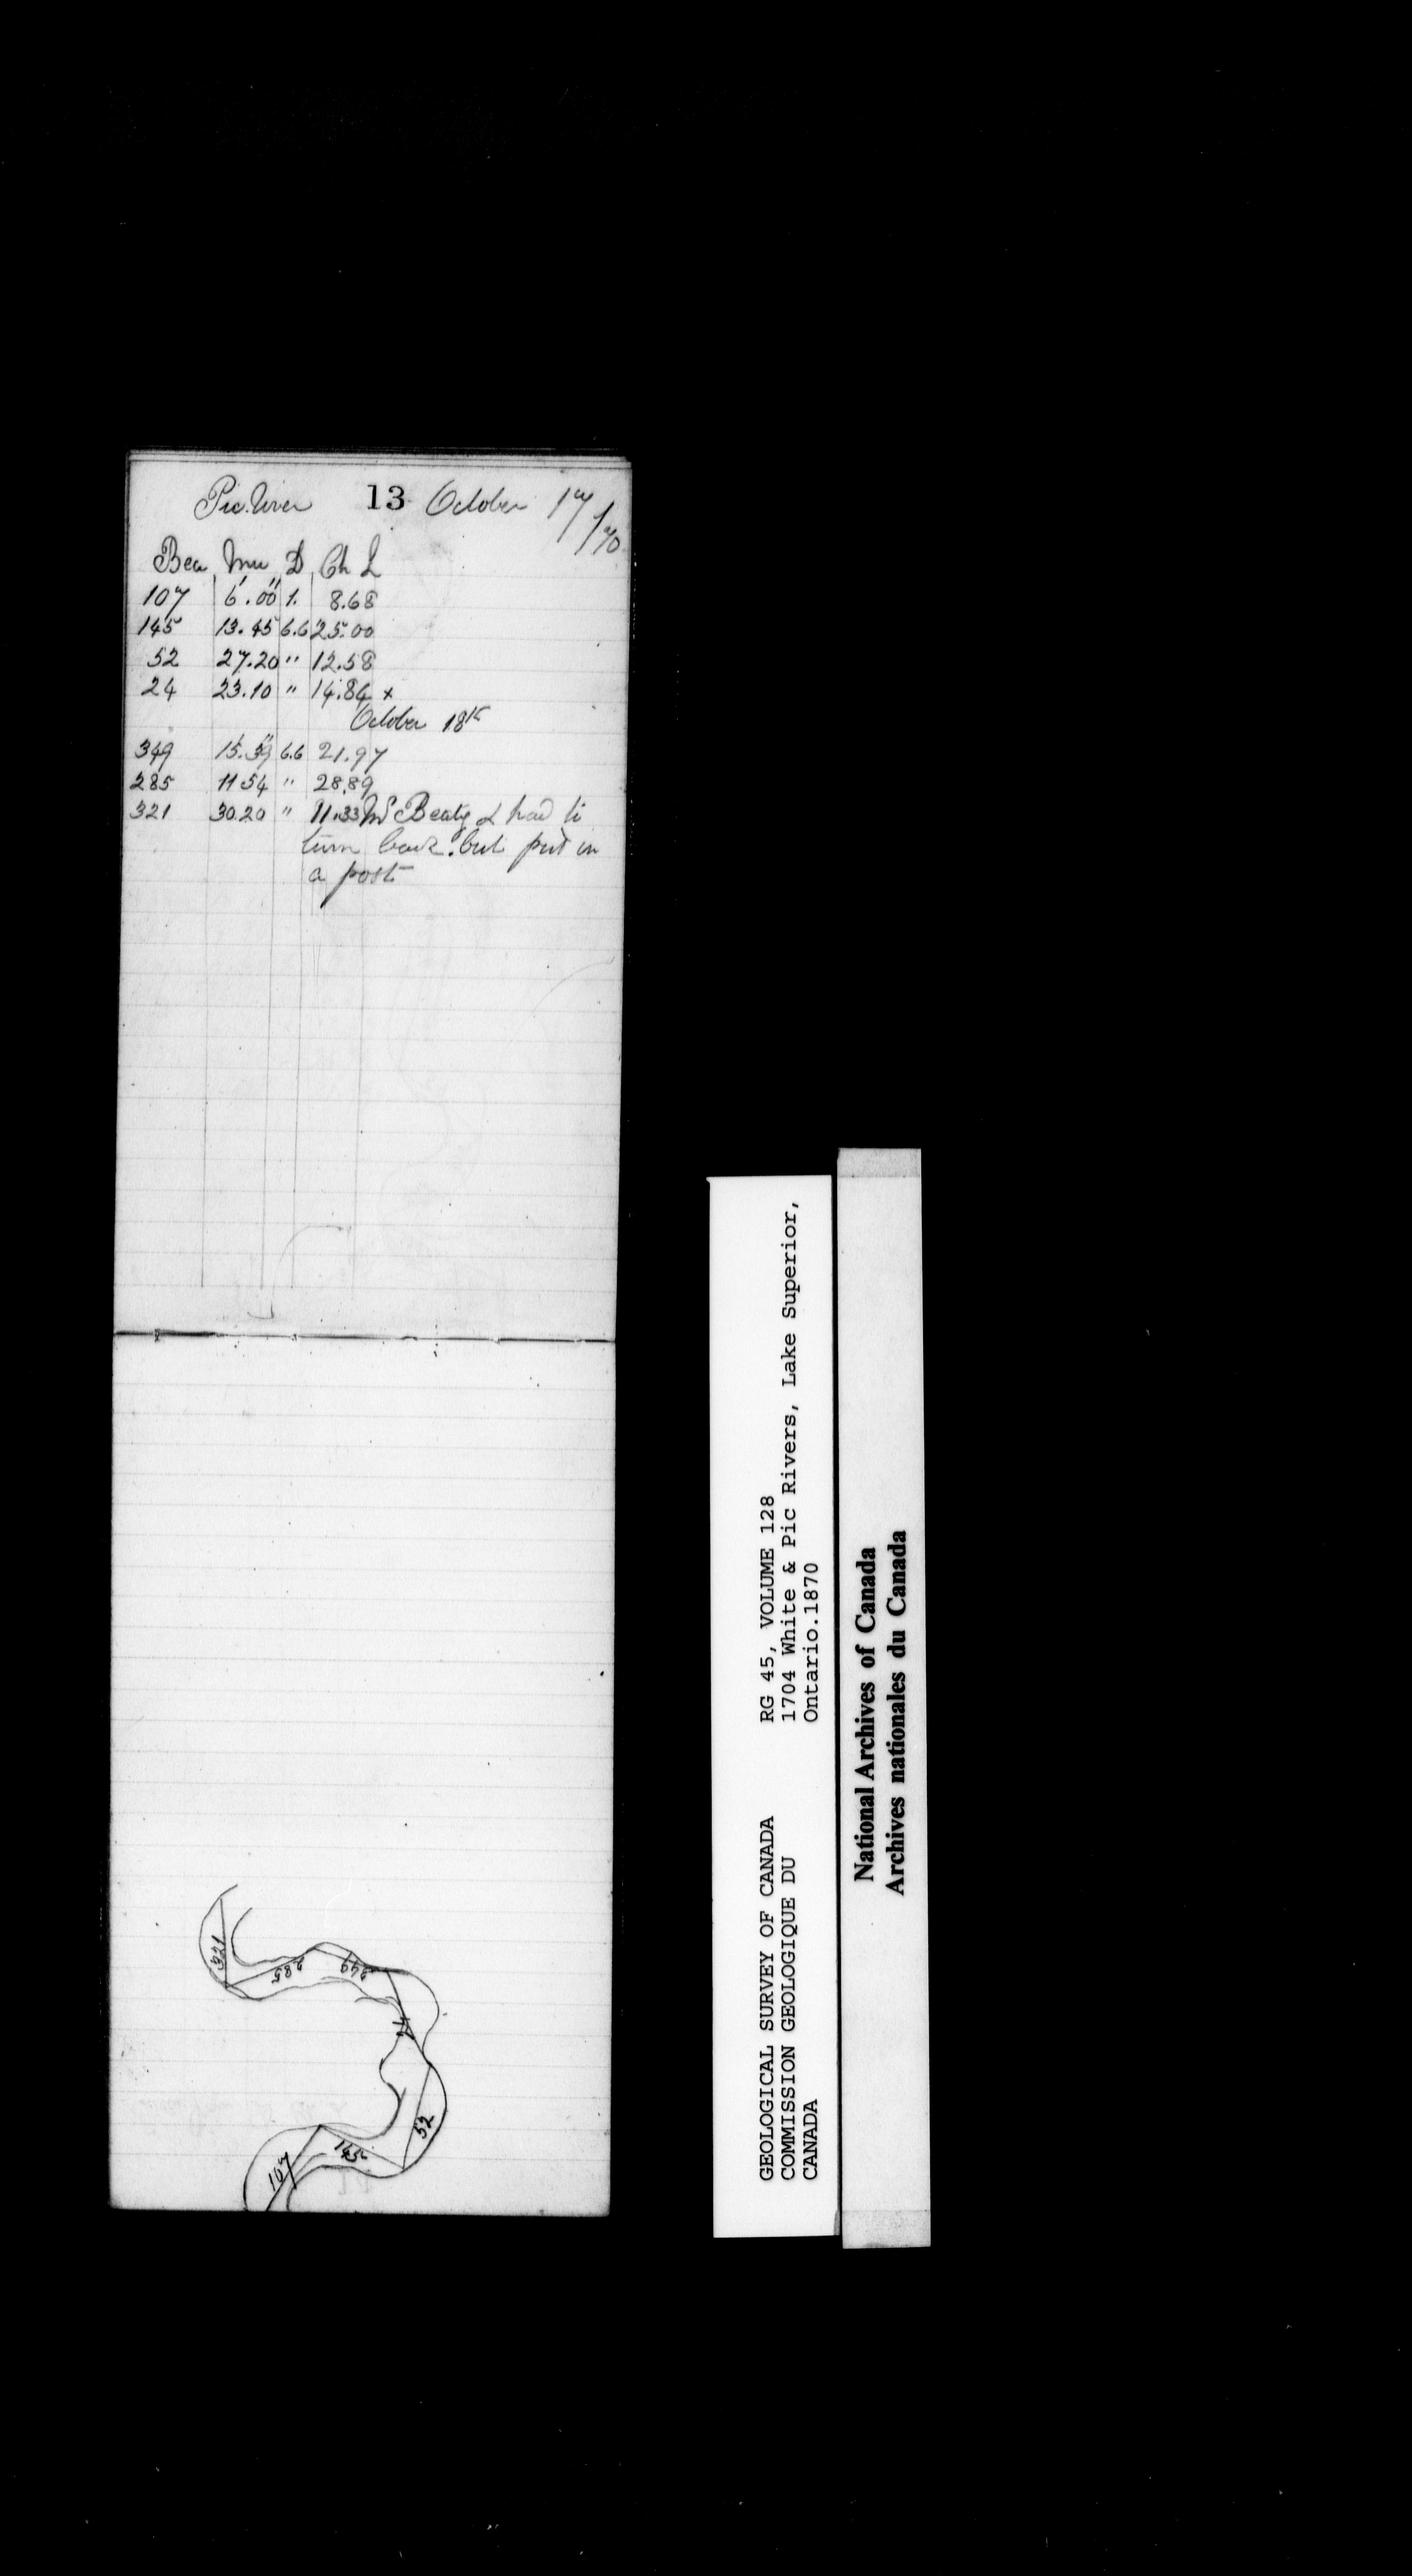 Pic River 13 October 17/70
Bea Mu D Ch L
107 6'.00" 1. 8.68
145 13.45 6.6 25.00
52 27.20 " 12.58
24 23.10 " 14.84 x
October 18th
349 15'.39" 6.6 21.97
285 11 54 " 28.89
321 30.20 " 11.33 Mr Beaty & had to
turn back. but put in
a post
321
285
349
24
52
145
107
GEOLOGICAL SURVEY OF CANADA RG 45, VOLUME 128
COMMISSION GEOLOGIQUE DU 1704 White & Pic Rivers, Lake Superior,
CANADA Ontario.1870
National Archives of Canada
Archives nationales du Canada